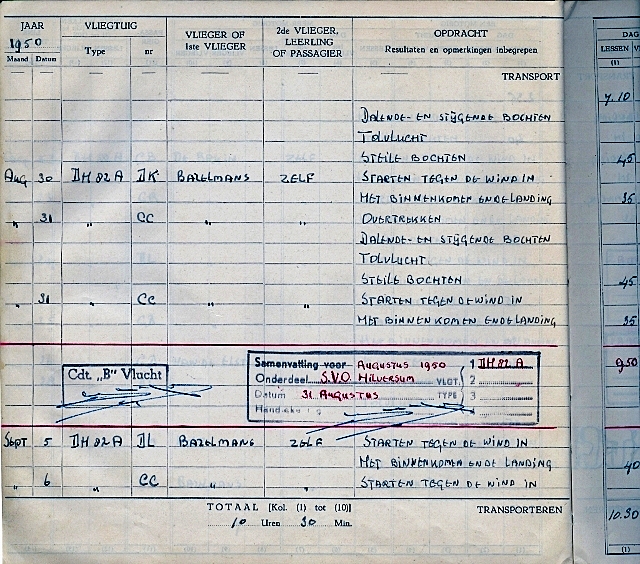 JAAR VLIEGTUIG VLIEGER OF 1ste VLIEGER 2de VLIEGER, LEERLING OF PASSAGIER OPDRACHT DAG
1950 Type nr Resultaten en opmerkingen inbegrepen LESSEN
Maand Datum (1)
TRANSPORT 7.10
DALENDE- EN STIJGENDE BOCHTEN
TOLVLUCHT
STEILE BOCHTEN 45
AUG 30 DH 82 A DK BAZELMANS ZELF STARTEN TEGEN DE WIND IN
MET BINNENKOMEN EN DE LANDING 35
„ 31 „ CC „ „ OVERTREKKEN
DALENDE- EN STIJGENDE BOCHTEN
TOLVLUCHT
STEILE BOCHTEN 45
„ 31 „ CC „ „ STARTEN TEGEN DE WIND IN
MET BINNENKOMEN EN DE LANDING 35
Samenvatting voor AUGUSTUS 1950 1 DH 82 A 9.50
Cdt. „B" Vlucht Onderdeel S.V.O. HILVERSUM VLGT. 2
Datum 31 AUGUSTUS TYPE 3
SEPT 5 DH 82 A DL BAZELMANS ZELF STARTEN TEGEN DE WIND IN
MET BINNENKOMEN EN DE LANDING 40
„ 6 „ CC „ „ STARTEN TEGEN DE WIND IN
TOTAAL [Kol. (1) tot (10)] TRANSPORTEREN
10 Uren 30 Min. 10.30
(1)